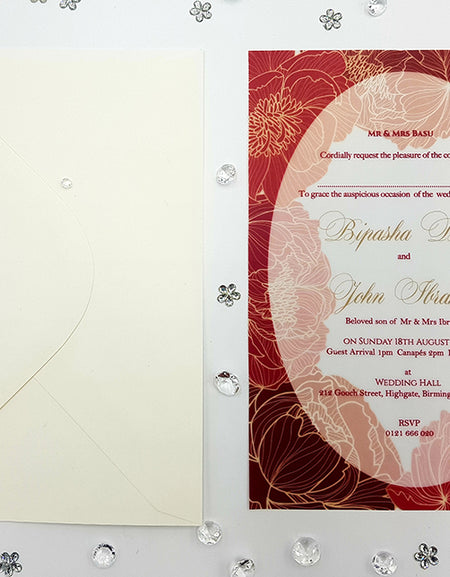 Mr & Mrs Basu
Cordially request the pleasure of the co
To grace the auspicious occasion of the wed
Bipasha
and
John Ibra
Beloved son of Mr & Mrs Ibr
on Sunday 18th August
Guest Arrival 1pm Canapés 2pm
at
Wedding Hall
212 Gooch Street, Highgate, Birming
RSVP
0121 666 020